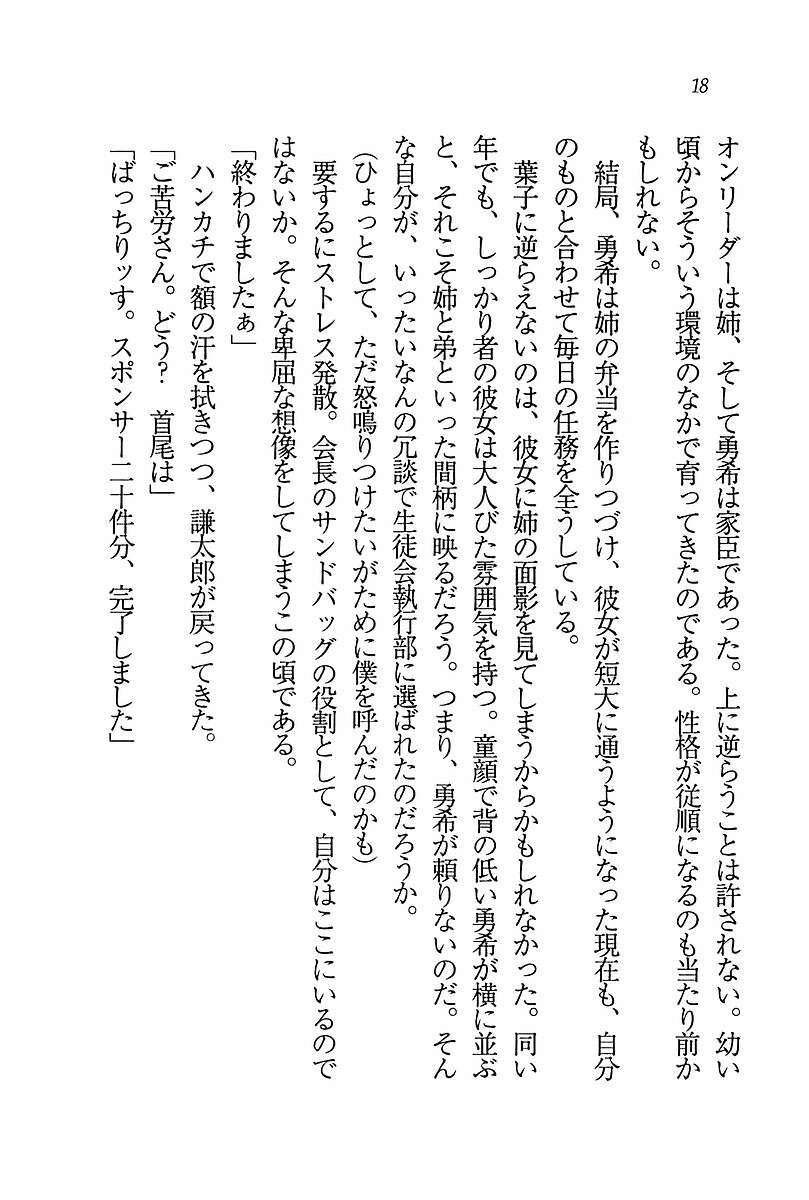 18
オンリーダーは姉、そして勇希は家臣であった。上に逆らうことは許されない。幼い
頃からそういう環境のなかで育ってきたのである。性格が従順になるのも当たり前か
もしれない。
　結局、勇希は姉の弁当を作りつづけ、彼女が短大に通うようになった現在も、自分
のものと合わせて毎日の任務を全うしている。
　葉子に逆らえないのは、彼女に姉の面影を見てしまうからかもしれなかった。同い
年でも、しっかり者の彼女は大人びた雰囲気を持つ。童顔で背の低い勇希が横に並ぶ
と、それこそ姉と弟といった間柄に映るだろう。つまり、勇希が頼りないのだ。そん
な自分が、いったいなんの冗談で生徒会執行部に選ばれたのだろうか。
（ひょっとして、ただ怒鳴りつけたいがために僕を呼んだのかも）
　要するにストレス発散。会長のサンドバッグの役割として、自分はここにいるので
はないか。そんな卑屈な想像をしてしまうこの頃である。
「終わりましたぁ」
　ハンカチで額の汗を拭きつつ、謙太郎が戻ってきた。
「ご苦労さん。どう？　首尾は」
「ばっちりッす。スポンサー二十件分、完了しました」